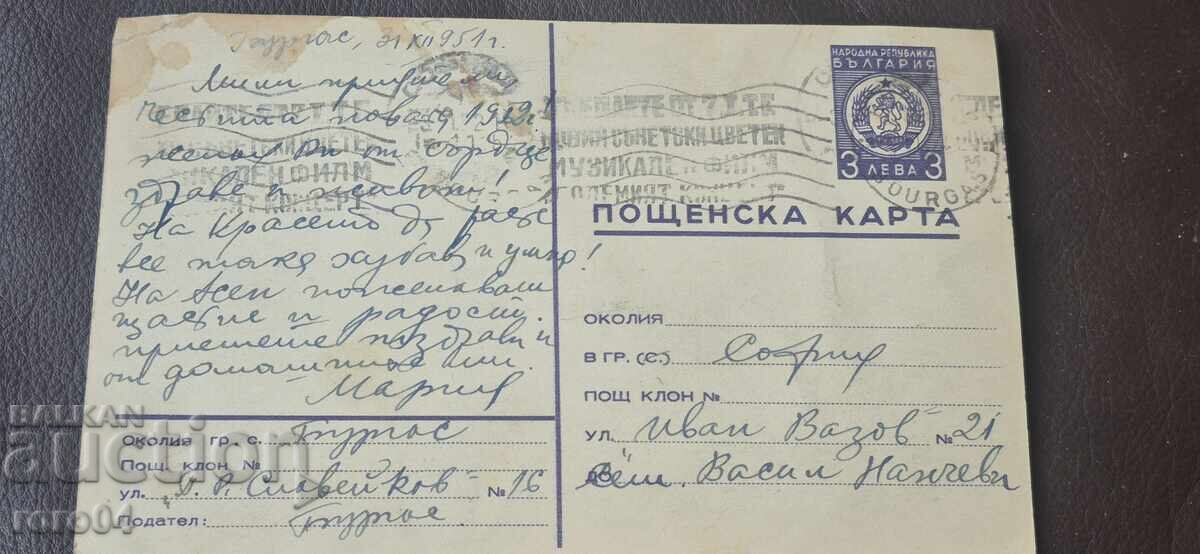 Бургас, 21 XII 951 г.
Мили приятели
Честита новата 1952 г.
желая Ви от сърдце
здраве и живот!
На Красето да расте
все така хубав и умно!
На Асен пожелавам
щастие и радост.
Приемете поздрави и
от домашните ми.
Мария
НАРОДНА РЕПУБЛИКА
БЪЛГАРИЯ
3 ЛЕВА 3
ЦВЕТЕН
МУЗИКАЛЕН ФИЛМ
ГОЛЕМИЯТ КОНЦЕРТ
BOURGAS
ПОЩЕНСКА КАРТА
ОКОЛИЯ
В ГР. (С.) София
ПОЩ КЛОН №
УЛ. Иван Вазов № 21
ДО Сем. Васил Начеви
ОКОЛИЯ ГР. С. Бургас
ПОЩ. КЛОН №
УЛ. "П. Р. Славейков" № 16
Подател: Бургас
BALKAN
auction
roro04